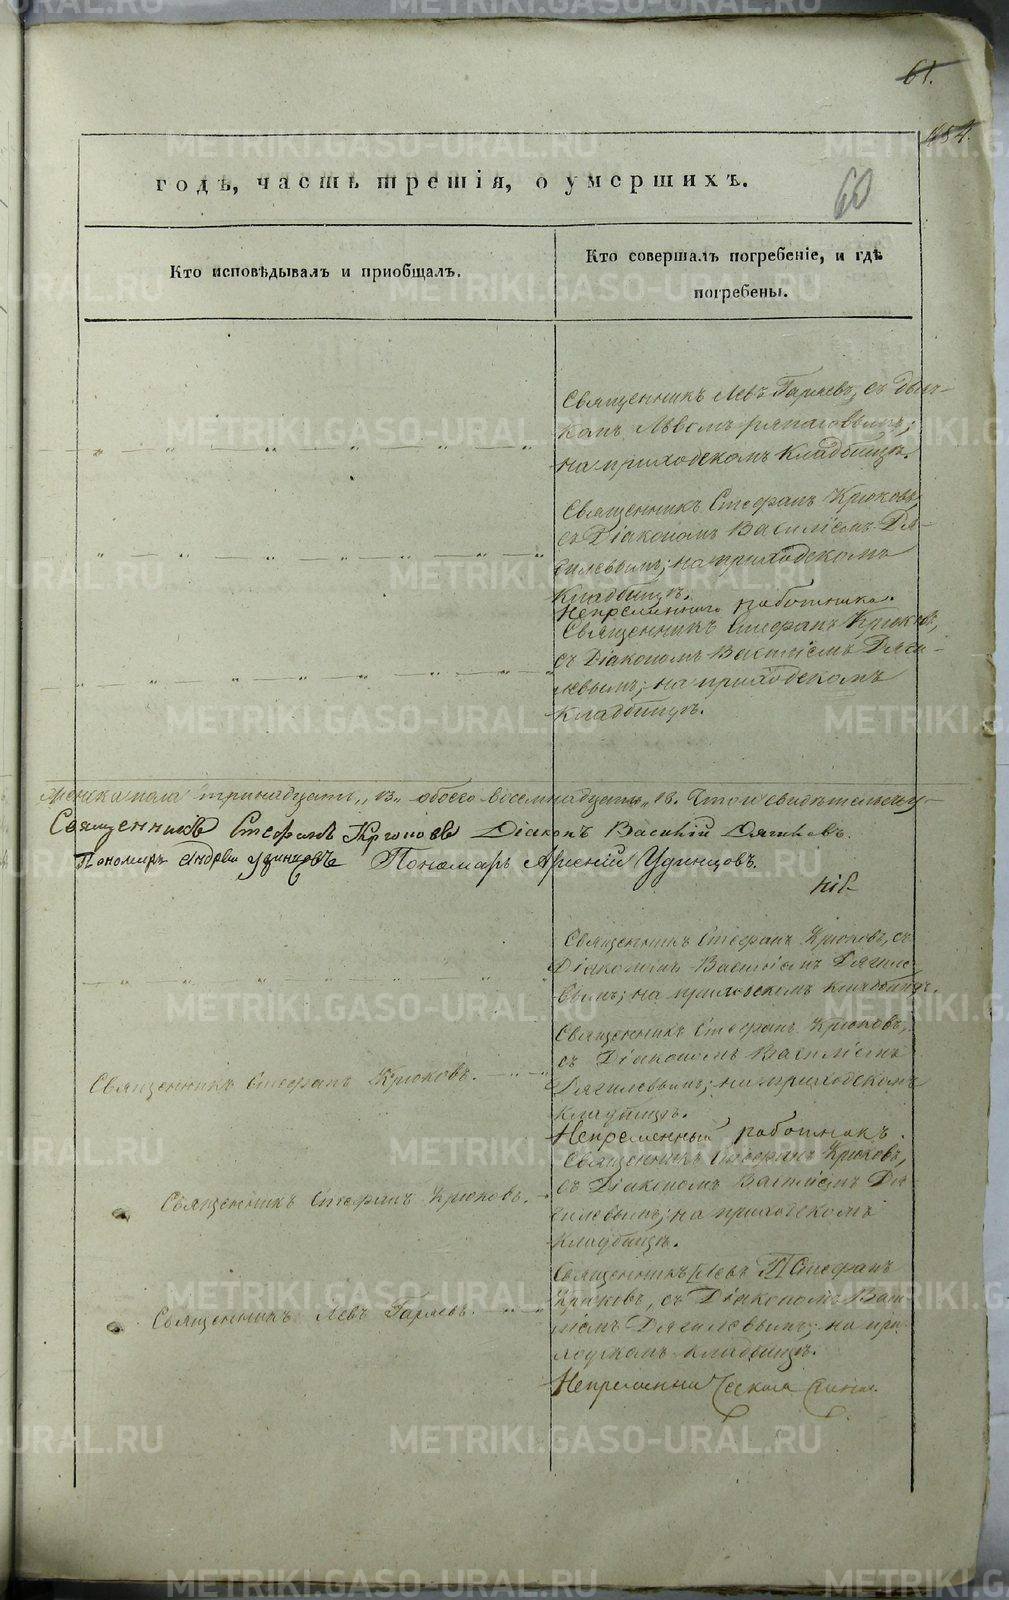 61.
годъ, часть третія, о умершихъ.
60
Кто исповѣдывалъ и пріобщалъ.
Кто совершалъ погребеніе, и гдѣ
погребены.
Священникъ Левъ Гаряевъ, съ Дьяч-
комъ Львомъ
на приходскомъ Кладбищѣ.
Священникъ Стефанъ Крюковъ,
съ Діакономъ Василіемъ Дя-
гилевымъ; на приходскомъ
Кладбищѣ.
Непременнаго работника.
Священникъ Стефанъ Крюковъ,
съ Діакономъ Василіемъ Дяги-
левымъ; на приходскомъ
Кладбищѣ.
Женска пола тринадцать „13„ обоего восемнадцать „18. Что и свидѣтельству-
Священникъ Стефанъ Крюковъ Діаконъ Василій Дягилевъ.
Пономарь Андрей Удинцовъ Пономарь Арсеній Удинцовъ.
Священникъ Стефанъ Крюковъ, съ
Діакономъ Василіемъ Дягиле-
вымъ; на приходскомъ кладбищѣ.
Священникъ Стефанъ Крюковъ.
Священникъ Стефанъ Крюковъ,
съ Діакономъ Василіемъ
Дягилевымъ; на приходскомъ
кладбищѣ.
Непременный работникъ.
Священникъ Стефанъ Крюковъ.
Священникъ Стефанъ Крюковъ,
съ Діакономъ Василіемъ Дя-
гилевымъ; на приходскомъ
кладбищѣ.
Священникъ Левъ Гаряевъ.
Священникъ Левъ Стефанъ
Крюковъ, съ Діакономъ Васи-
ліемъ Дягилевымъ; на при-
кладбищѣ.
METRIKI.GASO-URAL.RU